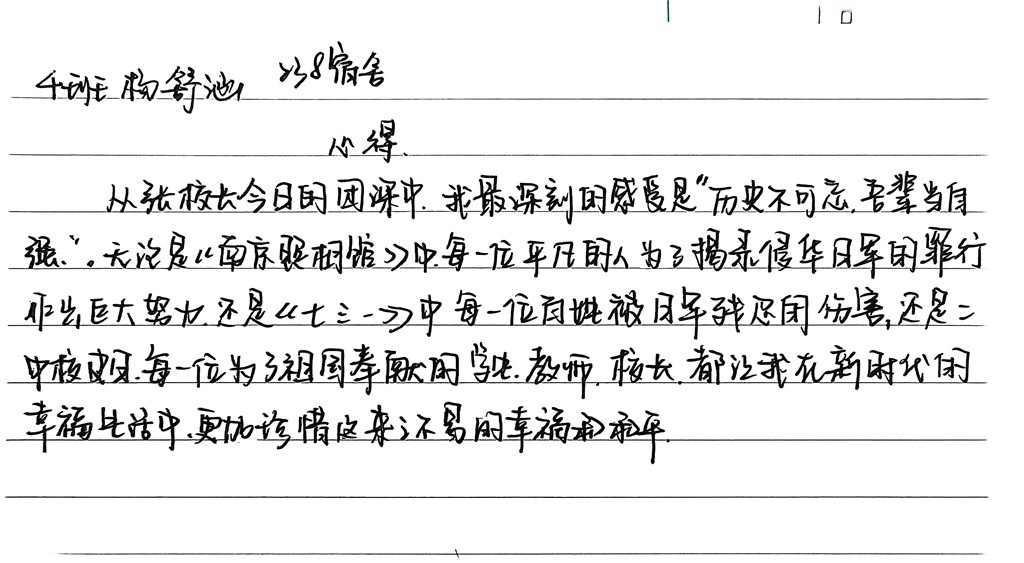 4班 杨舒池 238宿舍
心得.
从张校长今日的团课中.我最深刻的感受是“历史不可忘,吾辈当自
强.”。无论是《南京照相馆》中每一位平凡的人为了揭露侵华日军的罪行
作出巨大努力.还是《七三一》中每一位百姓被日军残忍的伤害,还是二
中校史.每一位为了祖国奉献的学生.教师.校长.都让我在新时代的
幸福生活中.更加珍惜这来之不易的幸福和和平.